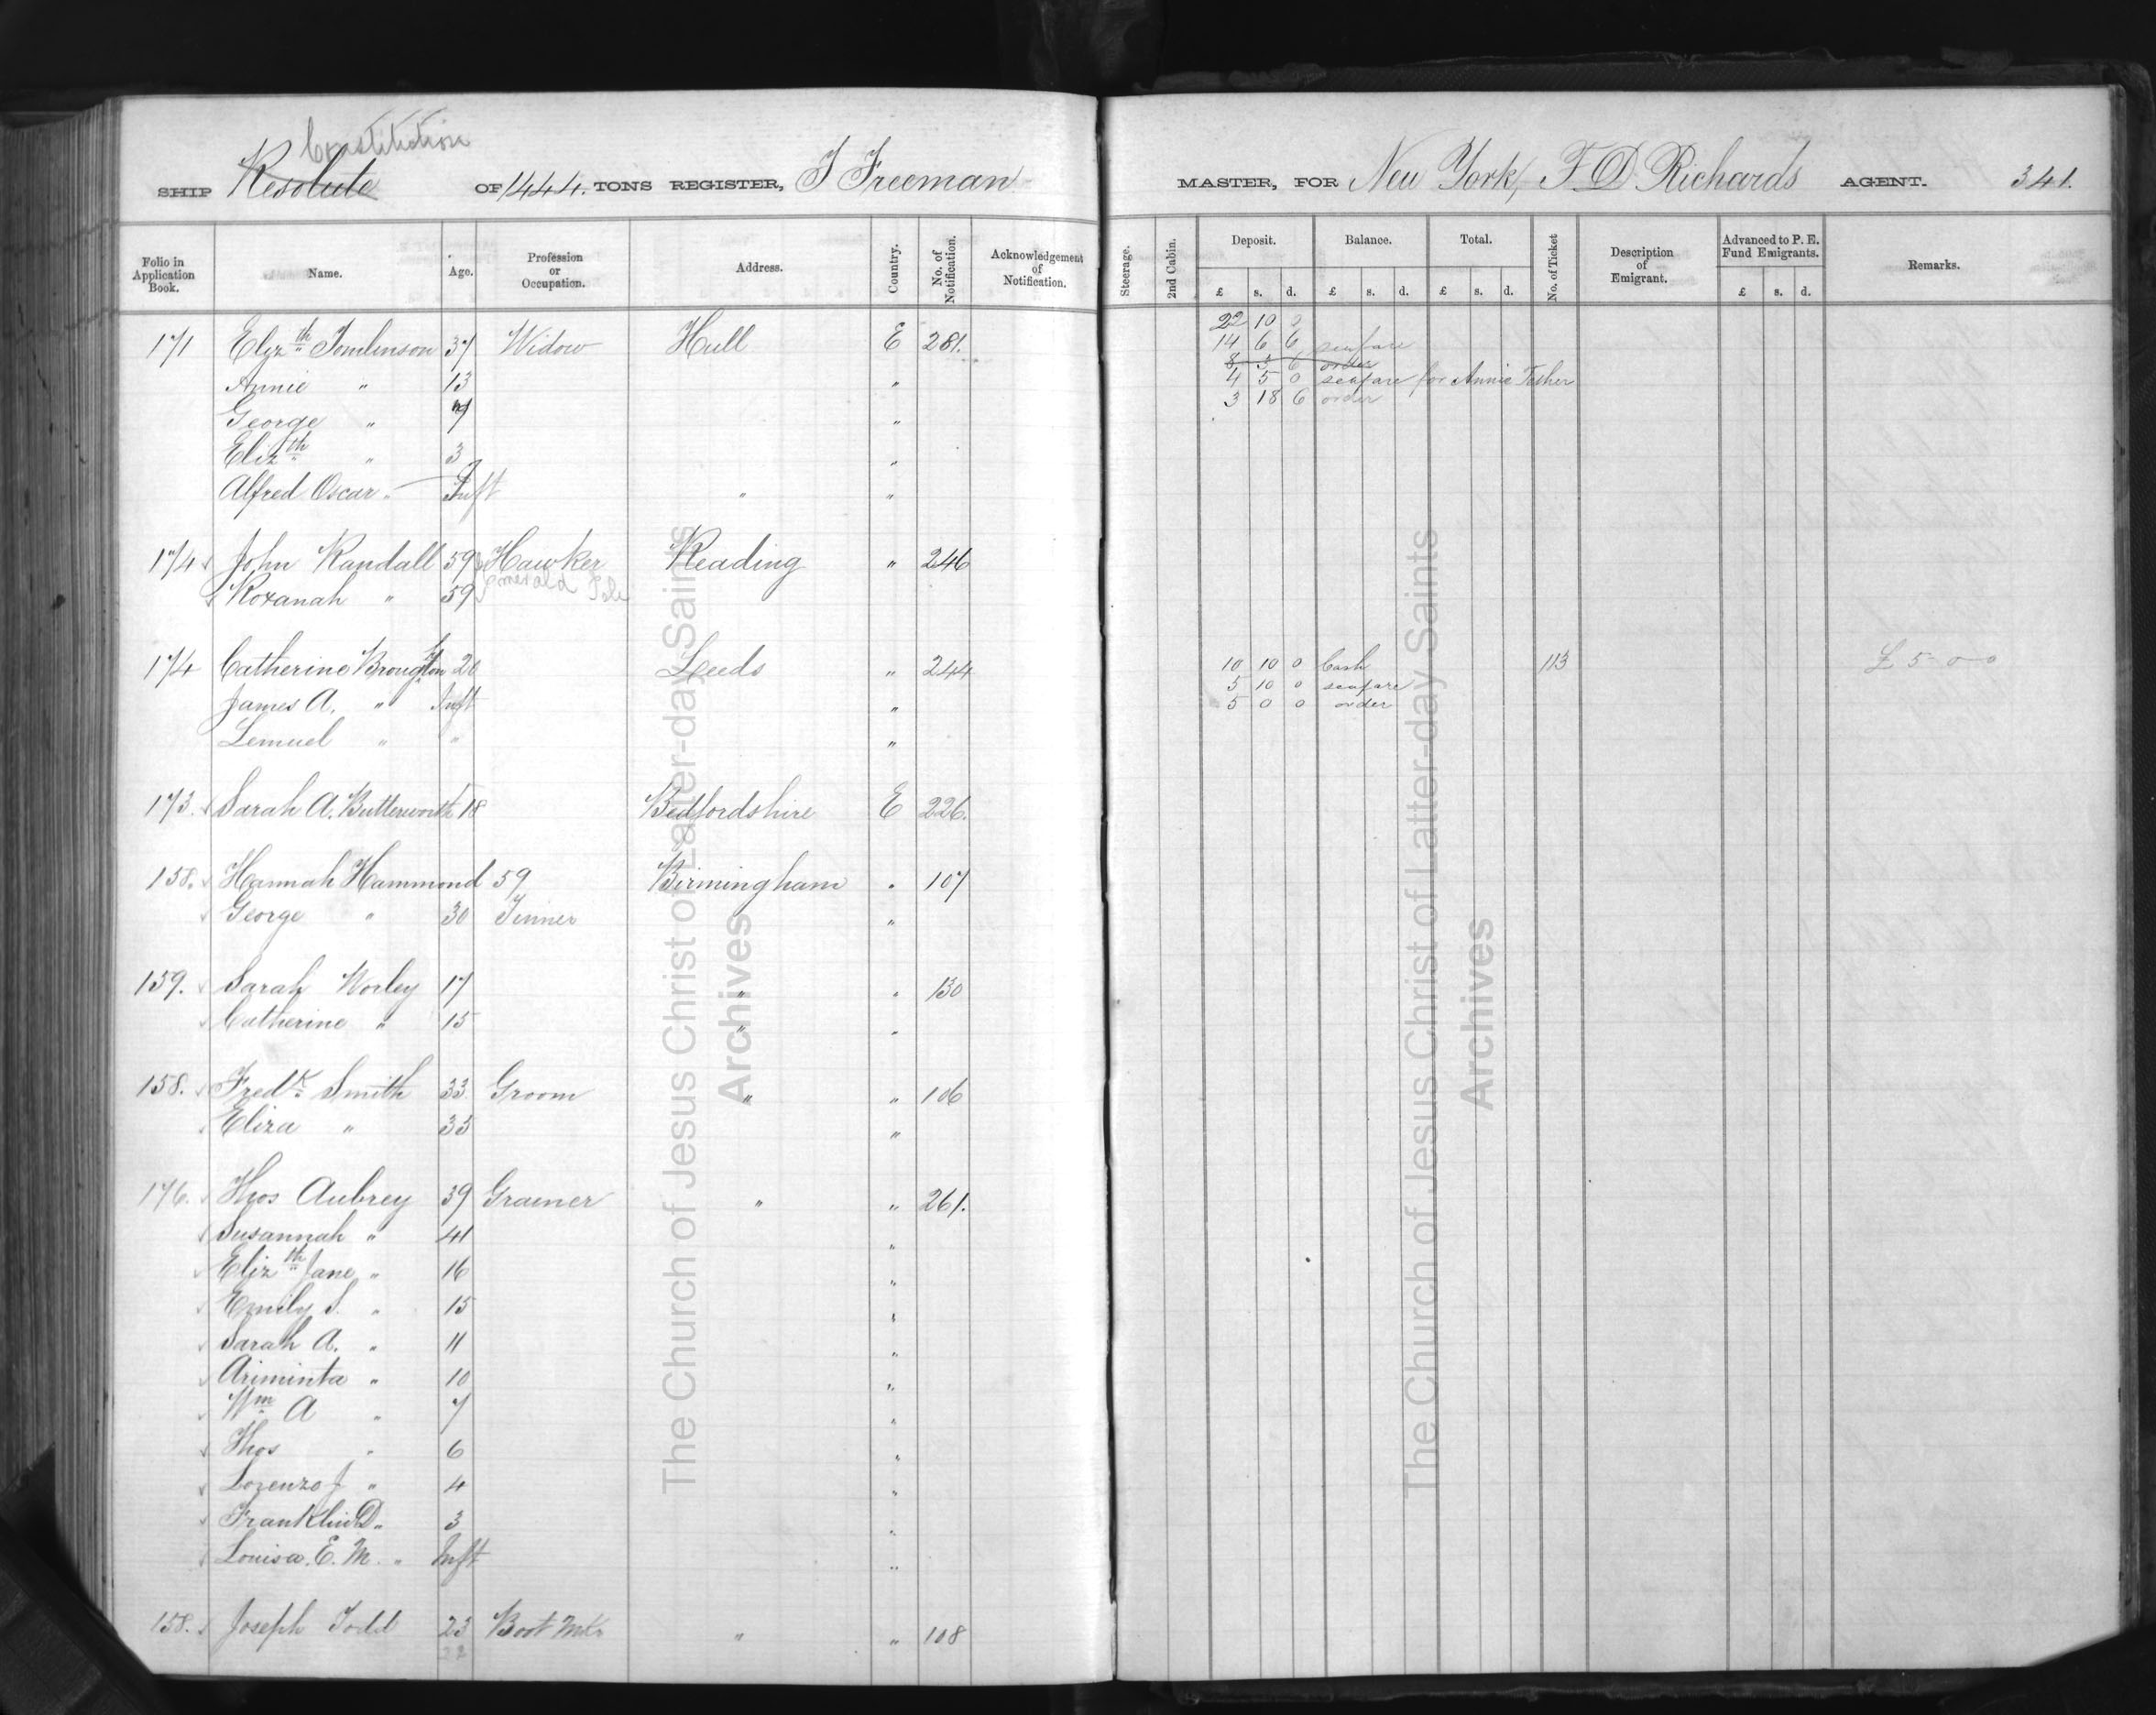 Constitution
SHIP Resolute OF 1444. TONS REGISTER, J Freeman MASTER, FOR New York, F. D Richards AGENT. 341.
Folio in Application Book. Name. Age. Profession or Occupation. Address. Country. No. of Notification. Acknowledgement of Notification. Steerage. 2nd Cabin. Deposit. Balance. Total. No. of Ticket Description of Emigrant. Advanced to P. E. Fund Emigrants. Remarks.
£ s. d. £ s. d. £ s. d. £ s. d.
22 10 0
171 Elizth Tomlinson 37 Widow Hull E 281. 14 6 6 seafare
8 3 6 order
Annie " 13 " 4 5 0 seafare for Annie Fisher
3 18 6 order
George " 7 "
Elizth " 3 "
Alfred Oscar " Inft " "
174 John Randall 59 Hawker Reading " 246
Emerald Isle
Roxanah " 59
174 Catherine Broughton 20 Leeds " 244 10 10 0 Cash 113 £ 5-0-0
5 10 0 seafare
James A. " Inft " 5 0 0 order
Lemuel " " "
173. Sarah A. Butterworth 18 Bedfordshire E 226.
158. Hannah Hammond 59 Birmingham " 107
George " 30 Tinner "
159. Sarah Worley 17 " " 130
Catherine " 15 " "
158. Fredk Smith 33 Groom " " 106
Eliza " 35 "
176. Thos Aubrey 39 Grainer " " 261.
Susannah " 41 "
Elizth Jane " 16 "
Emily S. " 15 "
Sarah A. " 11 "
Ariminta " 10 "
Wm A " 7 "
Thos " 6 "
Lorenzo J " 4 "
Franklin D " 3 "
Louisa. E. M. " Inft "
158. Joseph Todd 23 Boot Mkr " " 108
22
The Church of Jesus Christ of Latter-day Saints
Archives
The Church of Jesus Christ of Latter-day Saints
Archives